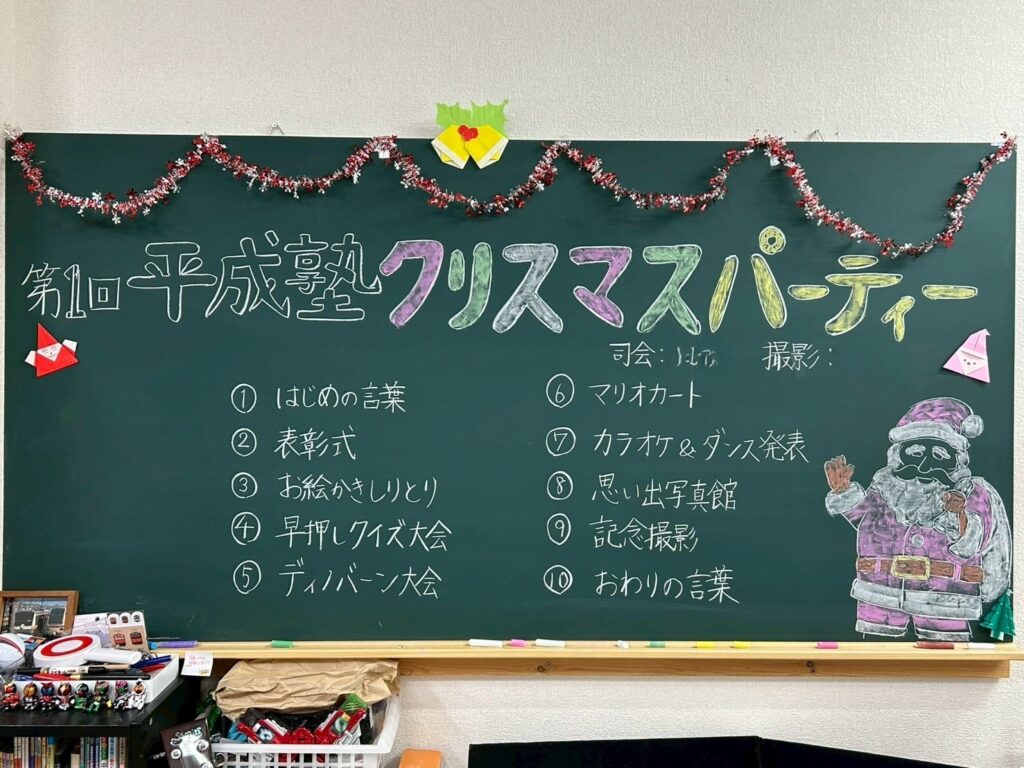 第1回平成塾クリスマスパーティー
司会: 撮影:
① はじめの言葉
② 表彰式
③ お絵かきしりとり
④ 早押しクイズ大会
⑤ ディノバーン大会
⑥ マリオカート
⑦ カラオケ&ダンス発表
⑧ 思い出写真館
⑨ 記念撮影
⑩ おわりの言葉